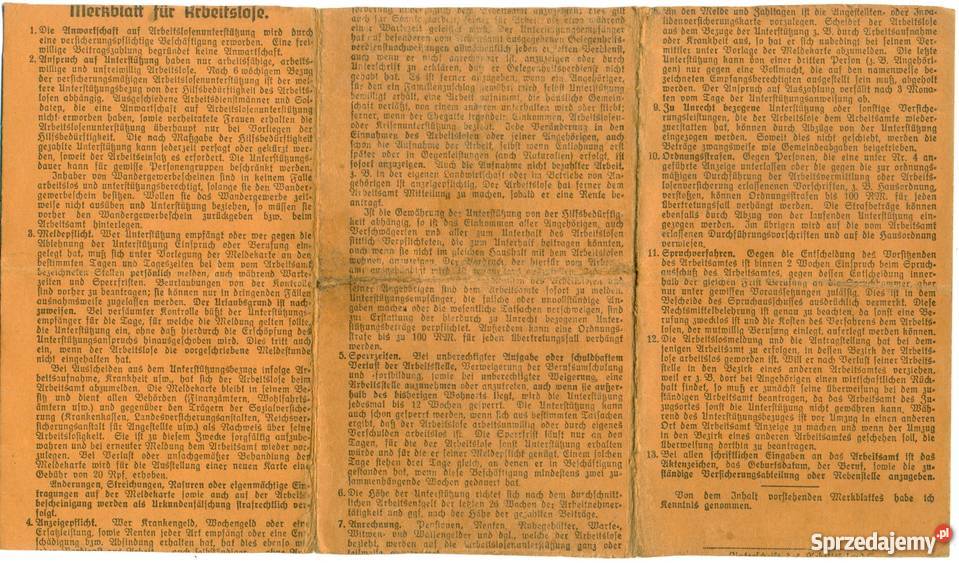 Merkblatt für Arbeitslose.
1. Die Anwartschaft auf Arbeitslosenunterstützung wird durch
eine versicherungspflichtige Beschäftigung erworben. Eine frei-
willige Beitragszahlung begründet keine Anwartschaft.
2. Anspruch auf Unterstützung haben nur arbeitsfähige, arbeits-
willige und unfreiwillig Arbeitslose. Nach 6 wöchigem Bezug
der versicherungsmäßigen Arbeitslosenunterstützung ist der wei-
tere Unterstützungsbezug von der Hilfsbedürftigkeit des Arbeits-
losen abhängig. Ausgeschiedene Arbeitsdienstmänner und Sol-
daten, die eine Anwartschaft auf Arbeitslosenunterstützung
nicht erworben haben, sowie verheiratete Frauen erhalten die
Arbeitslosenunterstützung überhaupt nur bei Vorliegen der
Hilfsbedürftigkeit. Die nach Maßgabe der Hilfsbedürftigkeit
gezahlte Unterstützung kann jederzeit versagt oder gekürzt wer-
den, soweit der Arbeitseinsatz es erfordert. Die Unterstützungs-
dauer kann für gewisse Personengruppen beschränkt werden.
Inhaber von Wandergewerbescheinen sind in keinem Falle
arbeitslos und unterstützungsberechtigt, solange sie den Wan-
gewerbeschein besitzen. Wollen sie das Wandergewerbe zeit-
weise nicht ausüben und Unterstützung beziehen, so müssen sie
vorher den Wandergewerbeschein zurückgeben bzw. beim
Arbeitsamt hinterlegen.
3. Meldepflicht. Wer Unterstützung empfängt oder wer gegen die
Ablehnung der Unterstützung Einspruch oder Berufung ein-
gelegt hat, muß sich unter Vorlegung der Meldekarte an den
bestimmten Tagen und Tageszeiten bei dem vom Arbeitsamt
bezeichneten Stellen persönlich melden, auch während Warte-
zeiten und Sperrfristen. Beurlaubungen von der Kontrolle
sind vorher zu beantragen; sie können nur in dringenden Fällen
ausnahmsweise zugelassen werden. Der Urlaubsgrund ist nach-
zuweisen. Bei versäumter Kontrolle büßt der Unterstützungs-
empfänger für die Tage, für welche die Meldung gelten sollte,
die Unterstützung ein, ohne daß hierdurch die Erschöpfung des
Unterstützungsanspruchs hinausgeschoben wird. Dies tritt auch
ein, wenn der Arbeitslose die vorgeschriebene Meldestunde
nicht eingehalten hat.
Bei Ausscheiden aus dem Unterstützungsbezuge infolge Ar-
beitsaufnahme, Krankheit usw., hat sich der Arbeitslose beim
Arbeitsamt abzumelden. Die Meldekarte bleibt in seinem Be-
sitz und dient allen Behörden (Finanzämtern, Wohlfahrts-
ämtern usw.) und gegenüber den Trägern der Sozialversiche-
rung (Krankenkassen, Landesversicherungsanstalten, Reichsver-
sicherungsanstalt für Angestellte usw.) als Nachweis über seine
Arbeitslosigkeit. Sie ist zu diesem Zwecke sorgfältig aufzube-
wahren und bei erneuter Meldung dem Arbeitsamt wieder vor-
zulegen. Bei Verlust oder unsachgemäßer Behandlung der
Meldekarte wird für die Ausstellung einer neuen Karte eine
Gebühr von 20 Rpf. erhoben.
Änderungen, Streichungen, Rasuren oder eigenmächtige Ein-
tragungen auf der Meldekarte sowie auch auf der Arbeits-
bescheinigung werden als Urkundenfälschung strafrechtlich ver-
folgt.
4. Anzeigepflicht. Wer Krankengeld, Wochengeld oder eine
Ersatzleistung, sowie Renten jeder Art empfängt oder eine Ent-
schädigung bzw. Abfindung erhalten hat, hat dies ebenso
gabt hat. Es ist ferner anzugeben, wenn ein Angehöriger,
für den ein Familienzuschlag gewährt wird, selbst Unterstützung
bewilligt erhält, eine Arbeit aufnimmt, die häusliche Gemein-
schaft verläßt, von einem anderen unterhalten wird oder stirbt;
ferner, wenn der Ehegatte irgendein Einkommen, Arbeitslosen-
oder Krisenunterstützung bezieht. Jede Veränderung in den
Einnahmen des Arbeitslosen oder seiner Angehörigen, auch
schon die Aufnahme der Arbeit, selbst wenn Entlohnung erst
später oder in Gegenleistungen (auch Naturalien) erfolgt, ist
sofort anzuzeigen. Auch die Aufnahme nicht bezahlter Arbeit,
z. B. in der eigenen Landwirtschaft oder im Betriebe von An-
gehörigen ist anzeigepflichtig. Der Arbeitslose hat ferner dem
Arbeitsamt Mitteilung zu machen, sobald er eine Rente be-
antragt.
Ist die Gewährung der Unterstützung von der Hilfsbedürftig-
keit abhängig, so ist das Einkommen aller Angehörigen, auch
Verschwägerten und aller zum Unterhalt des Arbeitslosen
sittlich Verpflichteten, die zum Unterhalt beitragen könnten,
auch wenn sie nicht im gleichen Haushalt mit dem Arbeitslosen
wohnen, anzugeben.
Unterstützungsempfänger, die falsche oder unvollständige An-
gaben machen oder die wesentliche Tatsachen verschweigen, sind
zur Erstattung der hierdurch zu Unrecht bezogenen Unter-
stützungsbeträge verpflichtet. Außerdem kann eine Ordnungs-
strafe bis zu 100 RM. für jeden Übertretungsfall verhängt
werden.
5. Sperrzeiten. Bei unberechtigter Aufgabe oder schuldhaftem
Verlust der Arbeitsstelle, Verweigerung der Berufsumschulung
und -fortbildung, sowie bei unberechtigter Weigerung, eine
Arbeitsstelle anzunehmen oder anzutreten, auch wenn sie außer-
halb des bisherigen Wohnorts liegt, wird die Unterstützung
jedesmal bis 12 Wochen gesperrt. Die Unterstützung kann
auch schon gesperrt werden, wenn sich aus bestimmten Tatsachen
ergibt, daß der Arbeitslose arbeitsunwillig oder durch eigenes
Verschulden arbeitslos ist. Die Sperrfrist läuft nur an den
Tagen, für die der Arbeitslose sonst Unterstützung erhalten
würde und für die er seiner Meldepflicht genügt. Einem solchen
Tage stehen drei Tage gleich, an denen er in Beschäftigung
gestanden hat, wenn diese Beschäftigung mindestens zwei zu-
sammenhängende Wochen gedauert hat.
6. Die Höhe der Unterstützung richtet sich nach dem durchschnitt-
lichen Arbeitsentgelt der letzten 26 Wochen der Arbeitnehmer-
tätigkeit und ggf. nach der Höhe der gezahlten Beiträge.
7. Anrechnung. Pensionen, Renten, Ruhegehälter, Warte-,
Witwen- und Waisengelder und dgl., welche der Arbeitslose
bezieht, werden auf die Arbeitslosenunterstützung ganz oder
8. An den Melde und Zahltagen ist die Angestellten- oder Inva-
lidenversicherungskarte vorzulegen. Scheidet der Arbeitslose
aus dem Bezug der Unterstützung z. B. durch Arbeitsaufnahme
oder Krankheit aus, so hat er sich unbedingt bei seinem Ver-
mittler unter Vorlage der Meldekarte abzumelden. Die letzte
Unterstützung kann von einer dritten Person (z. B. Angehöri-
gen) nur gegen eine Vollmacht, die auf den namenweise be-
zeichneten Empfangsberechtigten ausgestellt sein muß, abgeholt
werden. Der Anspruch auf Auszahlung verfällt nach 3 Mona-
ten vom Tage der Unterstützungsanweisung ab.
9. Zu Unrecht bezogene Unterstützung oder sonstige Versiche-
rungsleistungen, die der Arbeitslose dem Arbeitsamte wieder-
zuerstatten hat, können durch Abzüge von der Unterstützung
eingezogen werden. Soweit dies nicht geschieht, werden die
Beträge zwangsweise wie Gemeindeabgaben beigetrieben.
10. Ordnungsstrafen. Gegen Personen, die eine unter Nr. 4 an-
geführte Anzeige unterlassen oder die gegen die zur ordnungs-
mäßigen Durchführung der Arbeitsvermittlung oder Arbeits-
losenversicherung erlassenen Vorschriften, z. B. Hausordnung,
verstoßen, können Ordnungsstrafen bis 100 RM. für jeden
Übertretungsfall verhängt werden. Die Strafbeträge können
ebenfalls durch Abzug von der laufenden Unterstützung ein-
gezogen werden. Im übrigen wird auf die vom Arbeitsamt
erlassenen Durchführungsvorschriften und auf die Hausordnung
verwiesen.
11. Spruchverfahren. Gegen die Entscheidung des Vorsitzenden
des Arbeitsamtes ist binnen 2 Wochen Einspruch beim Spruch-
ausschuß des Arbeitsamtes, gegen dessen Entscheidung inner-
halb der gleichen Frist Berufung an die Spruchkammer, aber
nur unter gewissen Voraussetzungen zulässig. Dies ist in dem
Bescheide des Spruchausschusses ausdrücklich vermerkt. Diese
Rechtsmittelbelehrung ist genau zu beachten, da sonst eine Be-
rufung zwecklos ist und die Kosten des Verfahrens dem Arbeits-
losen, der mutwillig Berufung einlegt, auferlegt werden können.
12. Die Arbeitslosmeldung und die Antragstellung hat bei dem-
jenigen Arbeitsamt zu erfolgen, in dessen Bezirk der Arbeits-
lose arbeitslos geworden ist. Will er nach Verlust seiner Arbeits-
stelle in den Bezirk eines anderen Arbeitsamtes verziehen,
weil er z. B. dort bei Angehörigen einen wirtschaftlichen Rück-
halt findet, so muß er zunächst eine Überweisung bei dem zu-
ständigen Arbeitsamt beantragen, da das Arbeitsamt des Zu-
zugsortes sonst die Unterstützung nicht gewähren kann. Wäh-
rend des Unterstützungsbezuges ist vor Umzug in einen anderen
Ort dem Arbeitsamt Anzeige zu machen und wenn der Umzug
in den Bezirk eines anderen Arbeitsamtes geschehen soll, die
Überweisung dorthin zu beantragen.
13. Bei allen schriftlichen Eingaben an das Arbeitsamt ist das
Aktenzeichen, das Geburtsdatum, der Beruf, sowie die zu-
ständige Versicherungsabteilung oder Nebenstelle anzugeben.
Von dem Inhalt vorstehenden Merkblattes habe ich
Kenntnis genommen.
Sprzedajemy.pl